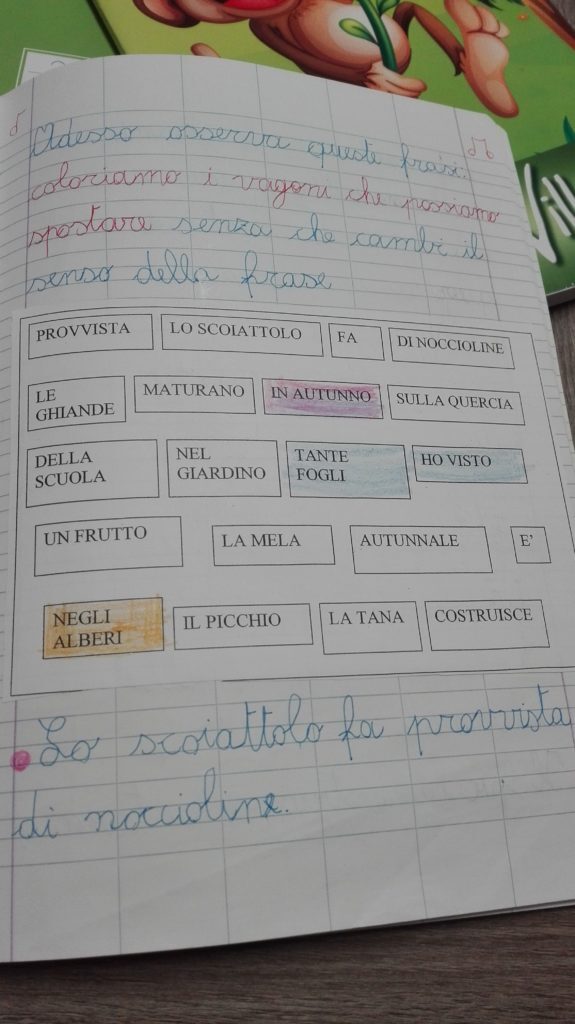 Adesso osserva queste frasi:
coloriamo i vagoni che possiamo
spostare senza che cambi il
senso della frase
PROVVISTA LO SCOIATTOLO FA DI NOCCIOLINE
LE GHIANDE MATURANO IN AUTUNNO SULLA QUERCIA
DELLA SCUOLA NEL GIARDINO TANTE FOGLI HO VISTO
UN FRUTTO LA MELA AUTUNNALE E'
NEGLI ALBERI IL PICCHIO LA TANA COSTRUISCE
Lo scoiattolo fa provvista
di noccioline.